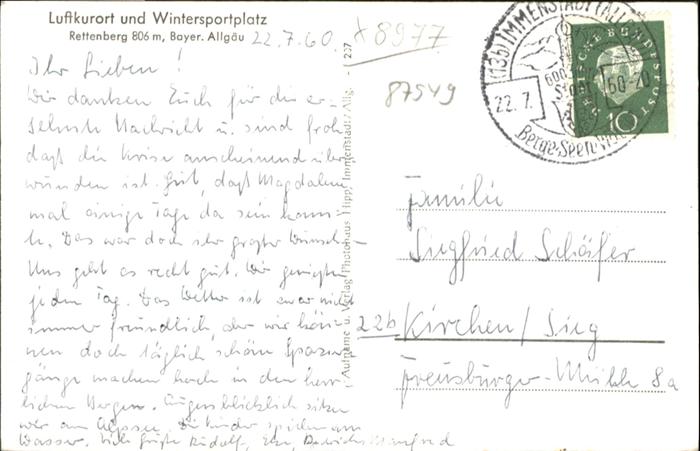 Luftkurort und Wintersportplatz
Rettenberg 806 m, Bayer. Allgäu 22.7.60.
Ihr Lieben!
Wir danken Euch für die er-
sehnte Nachricht u. sind froh
daß die Krise anscheinend über-
wunden ist. Gut, daß Magdalene
mal einige Tage da sein konn-
te. Das war doch ihr großer Wunsch.
Uns geht es recht gut. Wir genießen
jeden Tag. Das Wetter ist zwar nicht
immer freundlich, aber wir kön-
nen doch täglich schöne Spazier-
gänge machen hoch in den herr-
lichen Bergen. Augenblicklich sitzen
wir am Alpsee. Die Kinder spielen am
Wasser. Viele Grüße Rudolf, Manfred
Aufnahme u. Verlag Photohaus Hipp, Immenstadt / Allg. - 1237
*8977
87549
(13b) IMMENSTADT (ALLGÄU)
600
22.7.60-20
Berge-Seen
DEUTSCHE BUNDESPOST
10
Familie
Siegfried Schäfer
22b Kirchen/Sieg
Freusburger-Mühle 8a